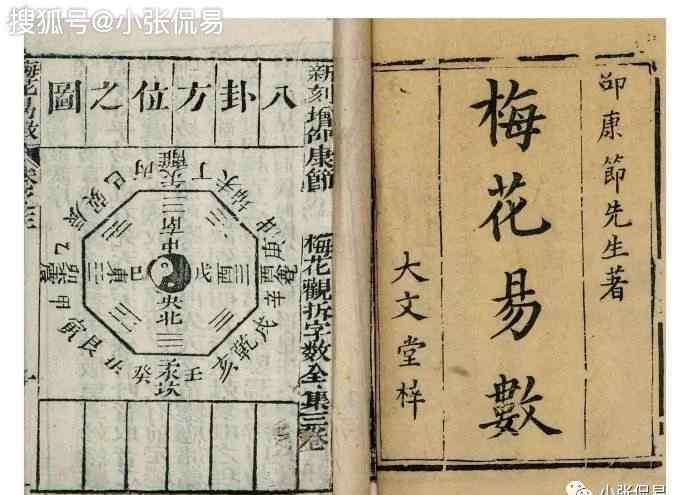 搜狐号@小张侃易
邵康節先生著
梅花易數
大文堂梓
新刻增邵康節
梅花觀折字数全集三卷
八卦方位之圖
丙午離丁
未坤申
庚酉兌辛
戌乾亥
壬子坎癸
丑艮寅
甲卯震乙
辰巽巳
南中
東巳
戊西
央北
小张侃易